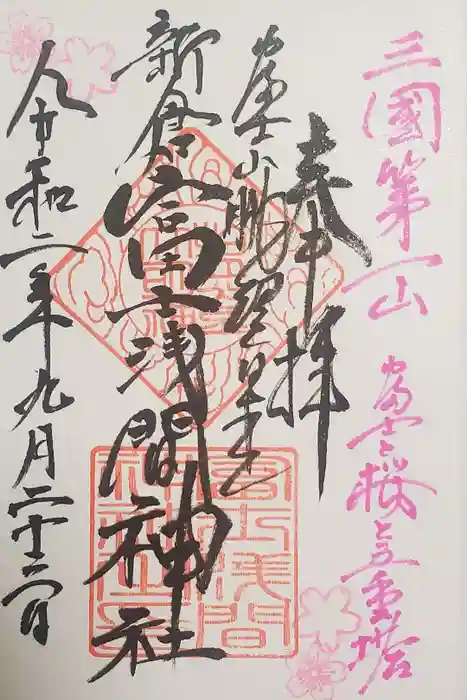 三國第一山
富士と桜と五重塔
奉拝
富士山眺望
新倉富士浅間神社
令和二年九月二十二日